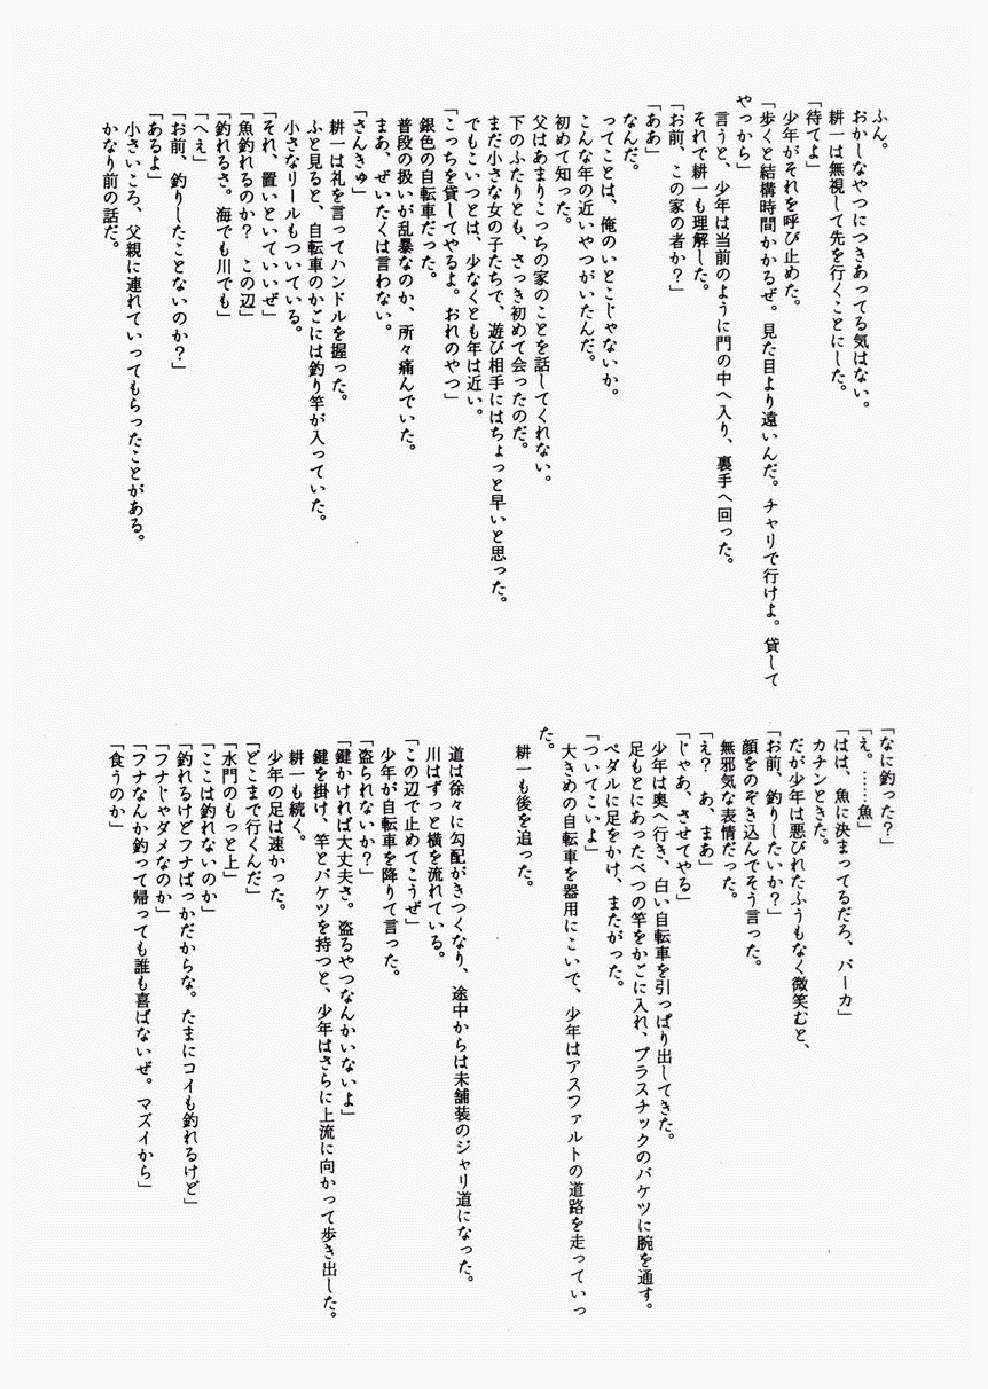 ふん。
おかしなやつにつきあってる気はない。
耕一は無視して先を行くことにした。
「待てよ」
少年がそれを呼び止めた。
「歩くと結構時間かかるぜ。見た目より遠いんだ。チャリで行けよ。貸して
やっから」
言うと、少年は当前のように門の中へ入り、裏手へ回った。
それで耕一も理解した。
「お前、この家の者か？」
「ああ」
なんだ。
ってことは、俺のいとこじゃないか。
こんな年の近いやつがいたんだ。
初めて知った。
父はあまりこっちの家のことを話してくれない。
下のふたりとも、さっき初めて会ったのだ。
まだ小さな女の子たちで、遊び相手にはちょっと早いと思った。
でもこいつとは、少なくとも年は近い。
「こっちを貸してやるよ。おれのやつ」
銀色の自転車だった。
普段の扱いが乱暴なのか、所々痛んでいた。
まあ、ぜいたくは言わない。
「さんきゅ」
耕一は礼を言ってハンドルを握った。
ふと見ると、自転車のかごには釣り竿が入っていた。
小さなリールもついている。
「それ、置いといていいぜ」
「魚釣れるのか？　この辺」
「釣れるさ。海でも川でも」
「へえ」
「お前、釣りしたことないのか？」
「あるよ」
小さいころ、父親に連れていってもらったことがある。
かなり前の話だ。
「なに釣った？」
「え。……魚」
「はは、魚に決まってるだろ、バーカ」
カチンときた。
だが少年は悪びれたふうもなく微笑むと、
「お前、釣りしたいか？」
顔をのぞき込んでそう言った。
無邪気な表情だった。
「え？　あ、まあ」
「じゃあ、させてやる」
少年は奥へ行き、白い自転車を引っぱり出してきた。
足もとにあったべつの竿をかごに入れ、プラスチックのバケツに腕を通す。
ペダルに足をかけ、またがった。
「ついてこいよ」
大きめの自転車を器用にこいで、少年はアスファルトの道路を走っていっ
た。
耕一も後を追った。
道は徐々に勾配がきつくなり、途中からは未舗装のジャリ道になった。
川はずっと横を流れている。
「この辺で止めてこうぜ」
少年が自転車を降りて言った。
「盗られないか？」
「鍵かければ大丈夫さ。盗るやつなんかいないよ」
鍵を掛け、竿とバケツを持つと、少年はさらに上流に向かって歩き出した。
耕一も続く。
少年の足は速かった。
「どこまで行くんだ」
「水門のもっと上」
「ここは釣れないのか」
「釣れるけどフナばっかだからな。たまにコイも釣れるけど」
「フナじゃダメなのか」
「フナなんか釣って帰っても誰も喜ばないぜ。マズイから」
「食うのか」